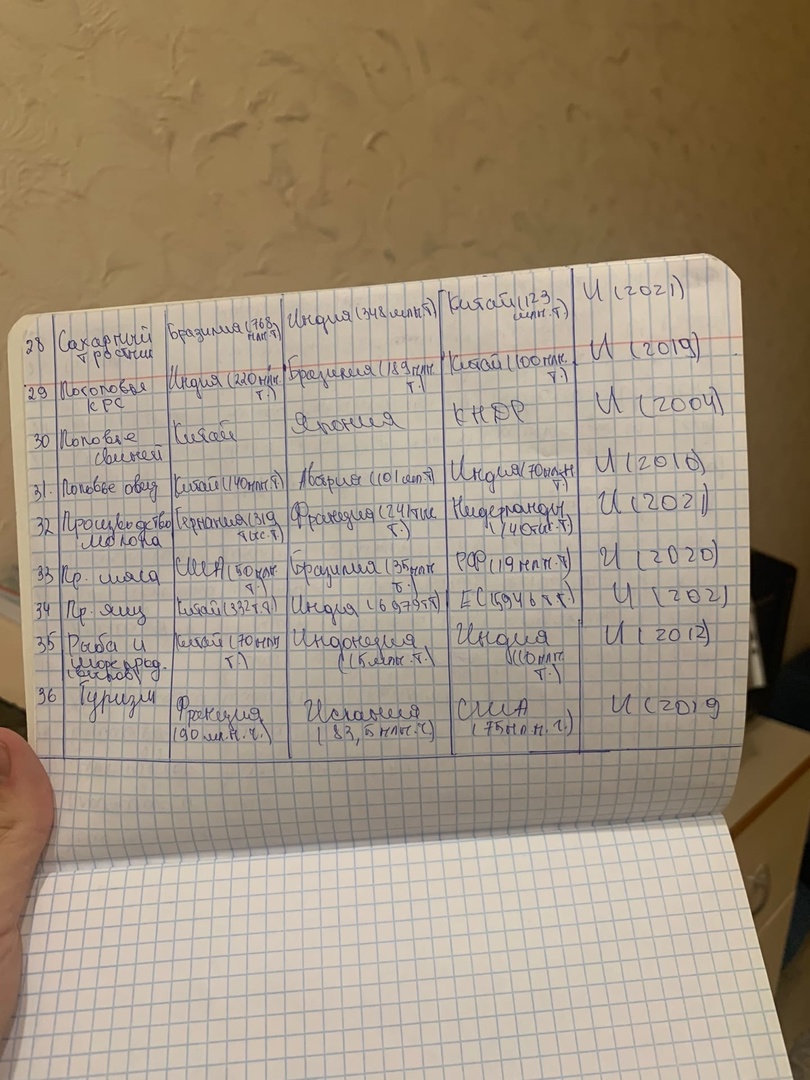 28 Сахарный тростник Бразилия (768 млн.т) Индия (348 млн.т) Китай (123 млн.т) И (2021)
29 Поголовье КРС Индия (220 млн. т.) Бразилия (189 млн т.) Китай (100 млн. т.) И (2019)
30 Головье свиней Китай Япония КНДР И (2004)
31. Головье овец Китай (140 млн.т) Австрия (101 млн т) Индия (70 млн.т) И (2016)
32 Производство молока Германия (319 тыс.т) Франция (241 т.) Нидерланды (140 тыс.т) И (2021)
33 Пр. мяса США (50 млн. т.) Бразилия (35 млн т.) РФ (19 млн.т) И (2020)
34 Пр. яиц Китай (332 т.т) Индия (6979 тт) ЕС (5946 т.т.) И (2021
35 Рыба и мореprод. Китай (70 млн т.) Индонезия (15 млн.т.) Индия (10 млн. т.) И (2012)
36 Туризм Франция (90 мл.н.ч.) Испания (83,5 млн.ч) США (75 млн.ч.) И (2019